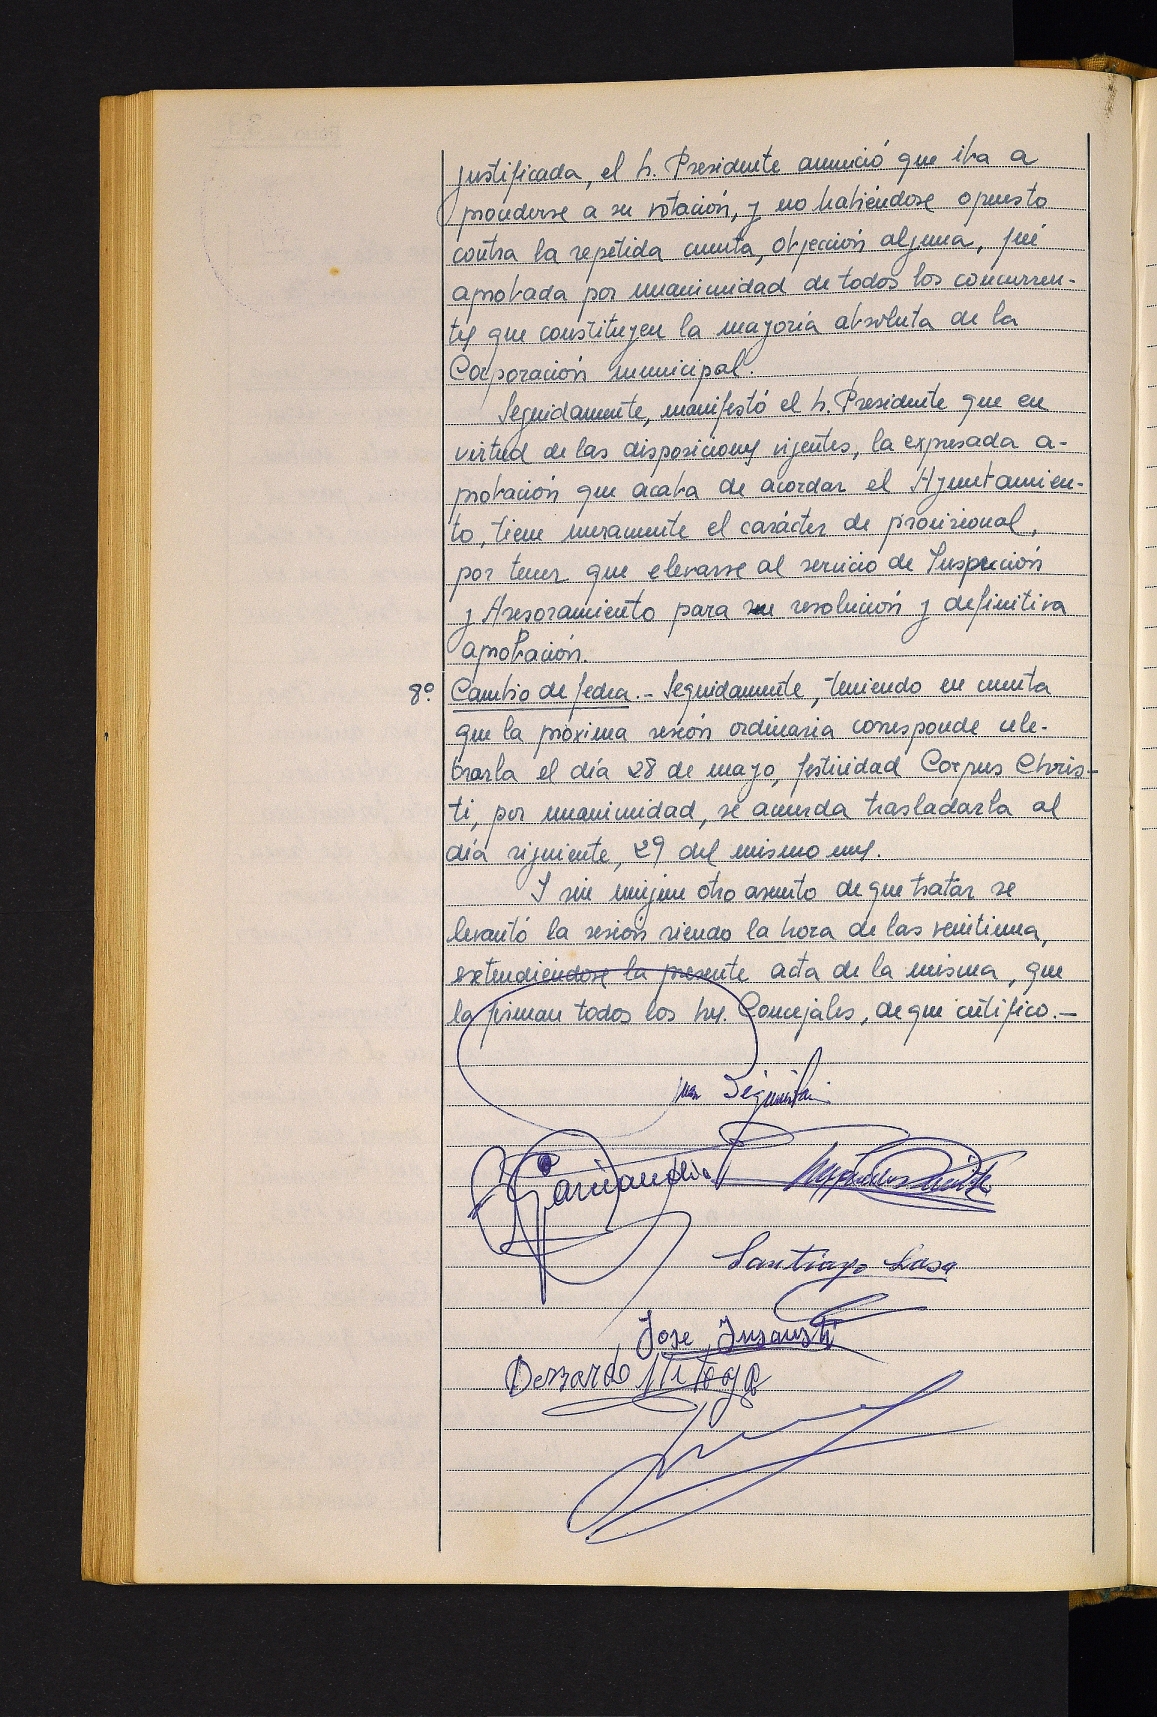 justificada, el Sr. Presidente anunció que iba a
proderse a su votación, y no habiéndose opuesto
contra la repetida cuenta, objección alguna, fué
aprobada por unanimidad de todos los concurren-
tes que constituyen la mayoría absoluta de la
Corporación municipal.
Seguidamente, manifestó el Sr. Presidente que en
virtud de las disposiciones vigentes, la expresada a-
probación que acaba de acordar el Ayuntamien-
to, tiene meramente el carácter de provisional,
por tener que elevarse al servicio de Inspección
y Asesoramiento para su resolución y definitiva
aprobación.
8º Cambio de fecha.- Seguidamente, teniendo en cuenta
que la próxima sesión ordinaria corresponde cele-
brarla el día 28 de mayo, festividad Corpus Chris-
ti, por unanimidad, se acuerda trasladarla al
día siguiente, 29 del mismo mes.
Y sin ningún otro asunto de que tratar se
levantó la sesión siendo la hora de las veintiuna,
extendiéndose la presente acta de la misma, que
la firman todos los Sres. Concejales, de que certifico.-
Juan
Garciandia
Santiago Lasa
Jose Insausti
Bernardo